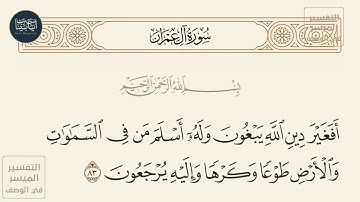 سُورَةُ آلِ عِمْرَانَ
بِسْمِ اللَّهِ الرَّحْمَٰنِ الرَّحِيمِ
أَفَغَيْرَ دِينِ اللَّهِ يَبْغُونَ وَلَهُ أَسْلَمَ مَن فِى السَّمَٰوَٰتِ
وَالْأَرْضِ طَوْعًا وَكَرْهًا وَإِلَيْهِ يُرْجَعُونَ ٨٣
التفسير
الميسر
في الوصف